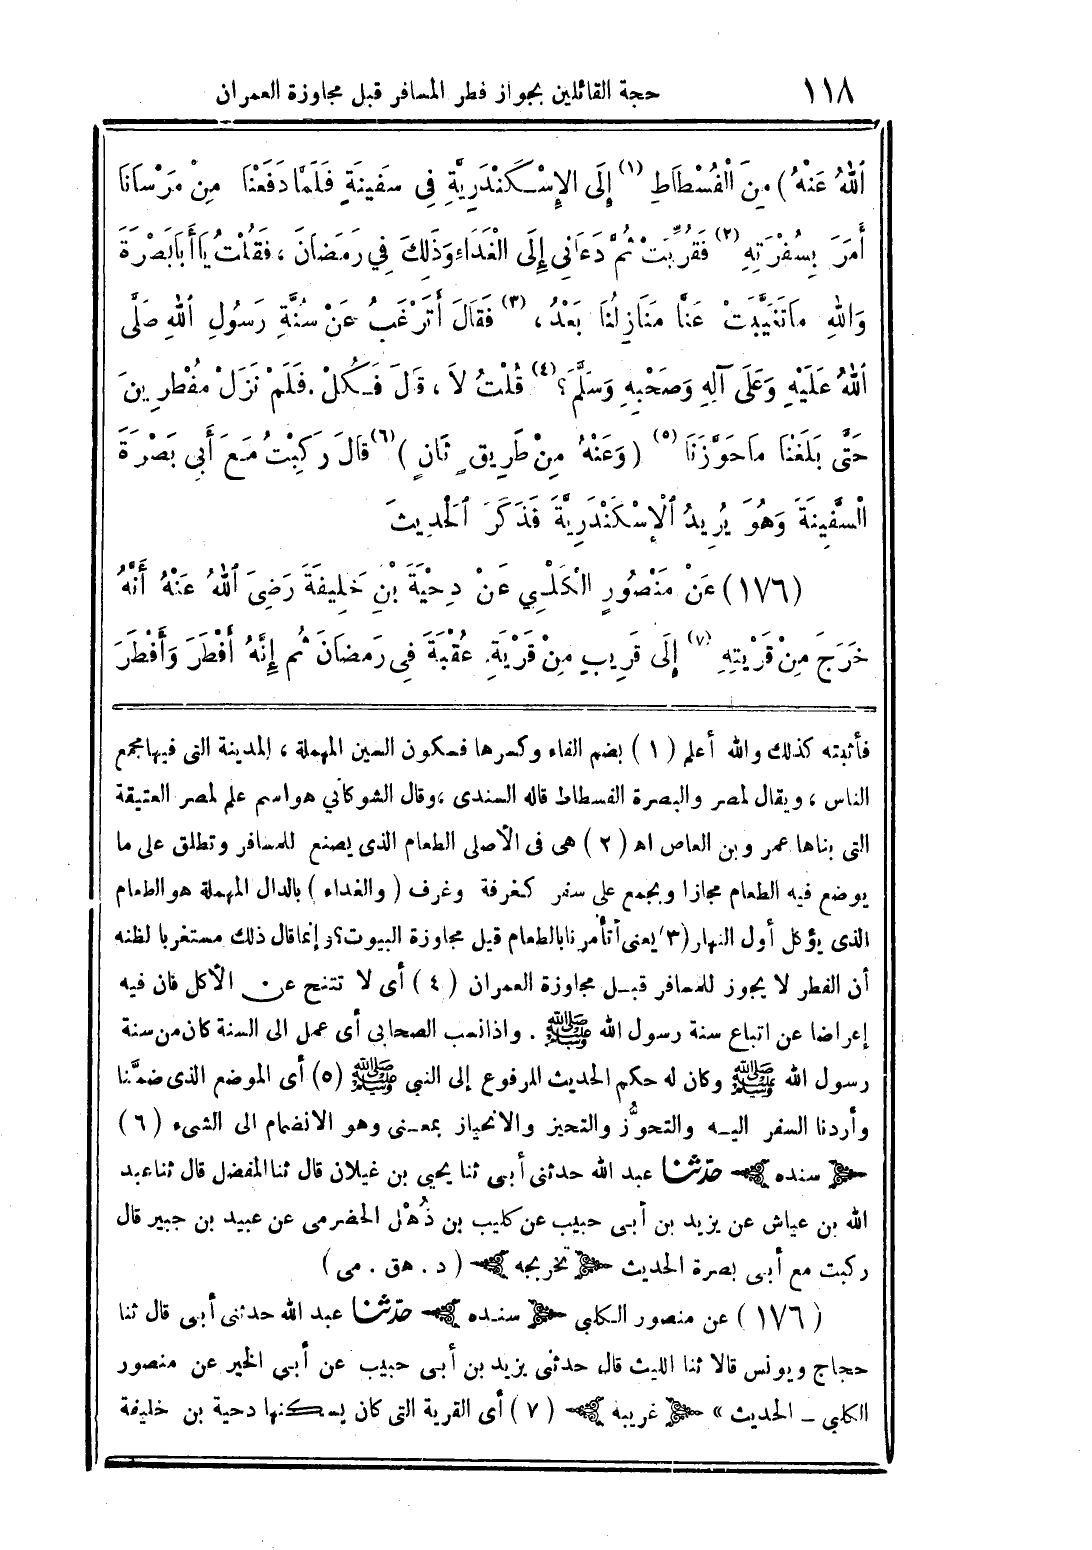 ١١٨ حجة القائلين بجواز فطر المسافر قبل مجاوزة العمران
اللهُ عَنْهُ) مِنَ الْفُسْطَاطِ (١) إِلَى الإِسْكَنْدَرِيَّةِ فِى سَفِينَةٍ فَلَمَّا دَفَعْنَا مِنْ مَرْسَانَا
أَمَرَ بِسُفْرَتِهِ (٢) فَقُرِّبَتْ ثُمَّ دَعَانِى إِلَى الْغَدَاءِ وَذَلِكَ فِي رَمَضَانَ ، فَقُلْتُ يَا أَبَا بَصْرَةَ
وَاللهِ مَا تَغَيَّبَتْ عَنَّا مَنَازِلُنَا بَعْدُ ، (٣) فَقَالَ أَتَرْغَبُ عَنْ سُنَّةِ رَسُولِ اللهِ صَلَّى
اللهُ عَلَيْهِ وَعَلَى آلِهِ وَصَحْبِهِ وَسَلَّمَ؟ (٤) قُلْتُ لاَ ، قَالَ فَكُلْ . فَلَمْ نَزَلْ مُفْطِرِينَ
حَتَّى بَلَغْنَا مَا حَوَّزَنَا (٥) (وَعَنْهُ مِنْ طَرِيقٍ ثَانٍ) (٦) قَالَ رَكِبْتُ مَعَ أَبِي بَصْرَةَ
الْسَّفِينَةَ وَهُوَ يُرِيدُ الْإِسْكَنْدَرِيَّةَ فَذَكَرَ الْحَدِيثَ
(١٧٦) عَنْ مَنْصُورٍ الْكَلْبِي عَنْ دِحْيَةَ بْنِ خَلِيفَةَ رَضِىَ اللهُ عَنْهُ أَنَّهُ
خَرَجَ مِنْ قَرْيَتِهِ (٧) إِلَى قَرِيبٍ مِنْ قَرْيَةِ عُقْبَةَ فِى رَمَضَانَ ثُم إِنَّهُ أَفْطَرَ وَأَفْطَرَ
فأثبته كذلك والله أعلم (١) بضم الفاء وكسرها فسكون السين المهملة ، المدينة التى فيها مجمع
الناس ، ويقال لمصر والبصرة الفسطاط قاله السندى ، وقال الشوكاني هو اسم علم لمصر العتيقة
التى بناها عمرو بن العاص اه (٢) هى فى الأصل الطعام الذى يصنع للمسافر وتطلق على ما
يوضع فيه الطعام مجازا ويجمع على سفر كغرفة وغرف (والغداء) بالدال المهملة هو الطعام
الذى يؤكل أول النهار (٣) يعنى أتأمرنا بالطعام قبل مجاوزة البيوت؟ وإنما قال ذلك مستغربا لظنه
أن الفطر لا يجوز للمسافر قبل مجاوزة العمران (٤) أى لا تتنح عن الأكل فان فيه
إعراضا عن اتباع سنة رسول الله ﷺ . واذا نسب الصحابي أى عمل الى السنة كان من سنة
رسول الله ﷺ وكان له حكم الحديث المرفوع إلى النبي ﷺ (٥) أى الموضع الذى ضمَّنا
وأردنا السفر اليه والتحوُّز والتحيز والانحياز بمعنى وهو الانضمام الى الشىء (٦)
سنده حدّثنا عبد الله حدثنى أبى ثنا يحيى بن غيلان قال ثنا المفضل قال ثنا عبد
الله بن عياش عن يزيد بن أبى حبيب عن كليب بن ذُهْل الحضرمى عن عبيد بن جبير قال
ركبت مع أبى بصرة الحديث تخريجه (د . هق . مى)
(١٧٦) عن منصور الكلبى سنده حدّثنا عبد الله حدثنى أبى قال ثنا
حجاج ويونس قالا ثنا الليث قال حدثنى يزيد بن أبى حبيب عن أبي الخير عن منصور
الكلبي ـ الحديث » غريبه (٧) أى القرية التى كان يسكنها دحية بن خليفة